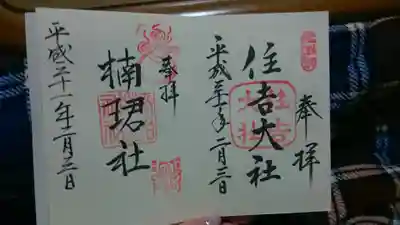 奉拝
住吉大社
平成二十一年二月三日
奉拝
楠珺社
平成二十一年二月三日